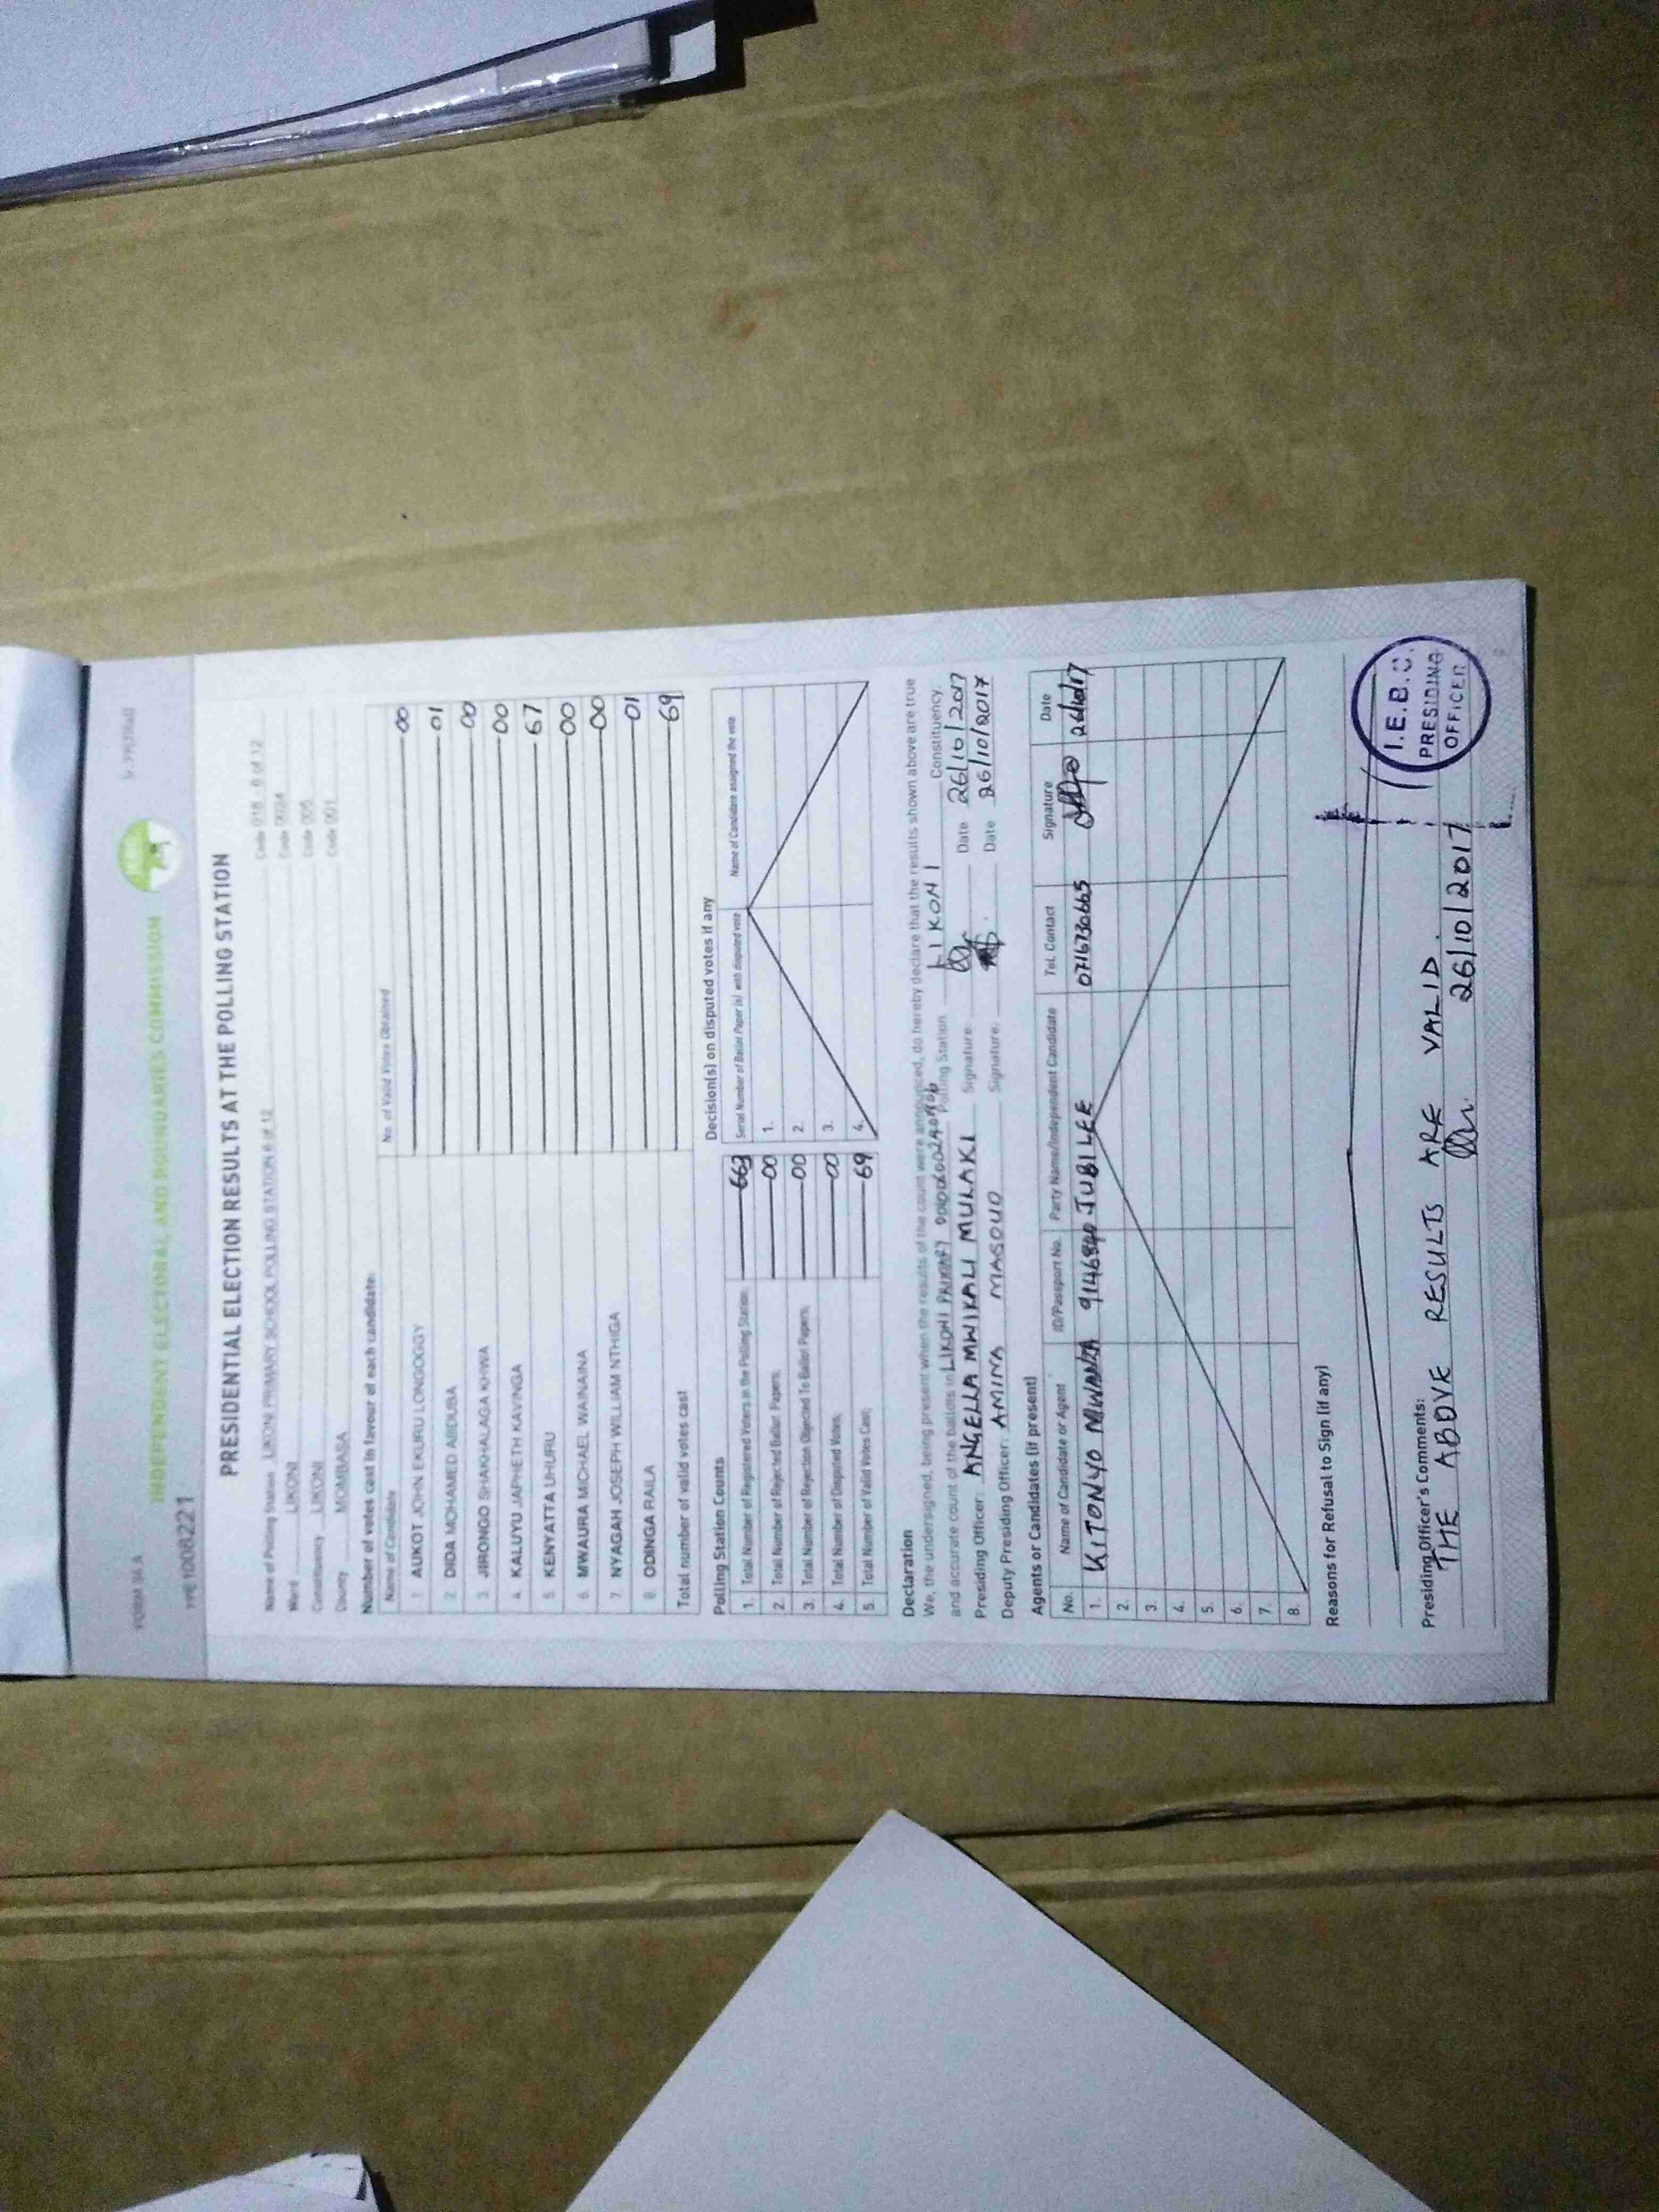 FORM 34A
INDEPENDENT ELECTORAL AND BOUNDARIES COMMISSION
PRESIDENTIAL ELECTION RESULTS AT THE POLLING STATION
Name of Polling Station LIKONI PRIMARY SCHOOL POLLING STATION 6 of 12 Code 018 - 6 of 12
Ward LIKONI Code 0024
Constituency LIKONI Code 005
County MOMBASA Code 001
Number of votes cast in favour of each candidate:
Name of Candidate No. of Valid Votes Obtained
1. AUKOT JOHN EKURU LONGOGGY 00
2. DIDA MOHAMED ABDUBA 01
3. JIRONGO SHAKHALAGA KHWA 00
4. KALUYU JAPHETH KAVINGA 00
5. KENYATTA UHURU 67
6. MWAURA MICHAEL WAINAINA 00
7. NYAGAH JOSEPH WILLIAM NTHIGA 00
8. ODINGA RAILA 01
Total number of valid votes cast 69
Polling Station Counts
1. Total Number of Registered Voters in the Polling Station: 663
2. Total Number of Rejected Ballot Papers; 00
3. Total Number of Rejection Objected To Ballot Papers; 00
4. Total Number of Disputed Votes; 00
5. Total Number of Valid Votes Cast; 69
Decision(s) on disputed votes if any
Serial Number of Ballot Paper (s) with disputed vote Name of Candidate assigned the vote
1.
2.
3.
4.
Declaration
We, the undersigned, being present when the results of the count were announced, do hereby declare that the results shown above are true
and accurate count of the ballots in LIKONI PRIMARY Polling Station LIKONI Constituency.
Presiding Officer: ANGELLA MWIKALI MULAKI Signature: Date 26/10/2017
Deputy Presiding Officer: AMINA MASOUD Signature: Date 26/10/2017
Agents or Candidates (if present)
No. Name of Candidate or Agent ID/Passport No. Party Name/Independent Candidate Tel. Contact Signature Date
1. KITONYO MWANZA JUBILEE 0716730665 26/10/17
2.
3.
4.
5.
6.
7.
8.
Reasons for Refusal to Sign (if any)
Presiding Officer's Comments:
THE ABOVE RESULTS ARE VALID.
26/10/2017
I.E.B.C.
PRESIDING
OFFICER